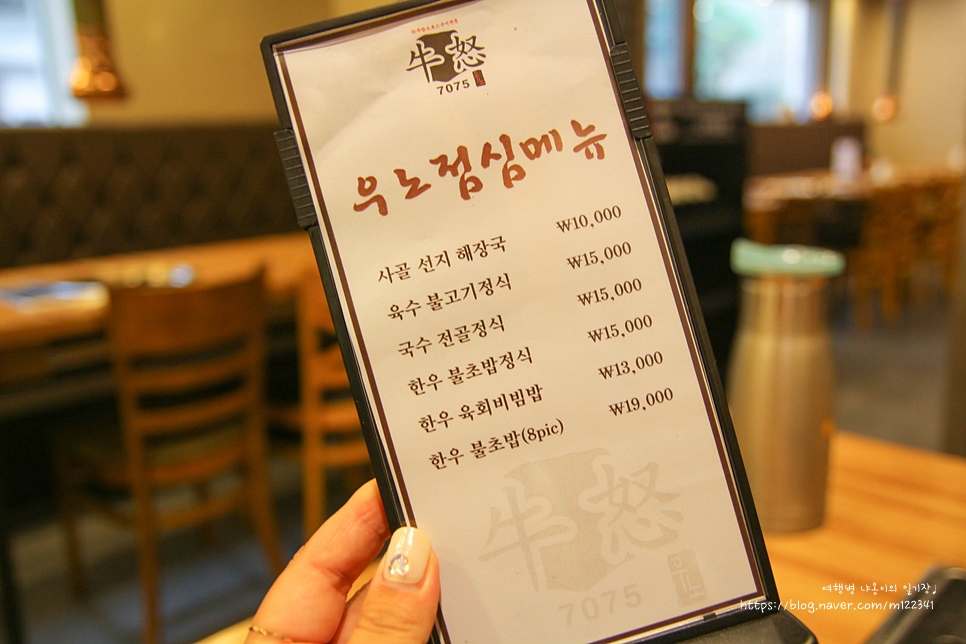 牛怒
7075
우노점심메뉴
사골 선지 해장국 ₩10,000
육수 불고기정식 ₩15,000
국수 전골정식 ₩15,000
한우 불초밥정식 ₩15,000
한우 육회비빔밥 ₩13,000
한우 불초밥(8pic) ₩19,000
牛怒
7075
여행별 냐옹이의 일기장♩
https://blog.naver.com/m122341